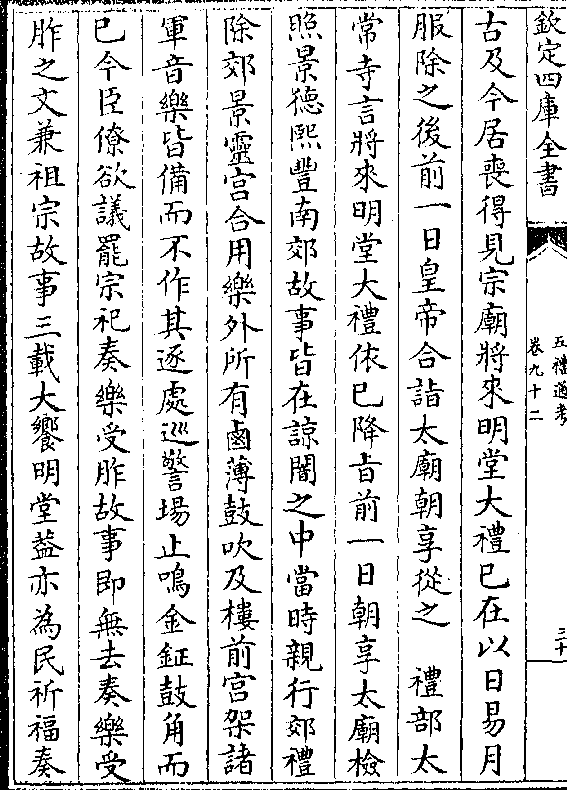 欽定四庫全書
五禮通考
卷九十二
三十
古及今居喪得見宗廟將來明堂大禮已在以日易月
服除之後前一日皇帝合詣太廟朝享從之　禮部太
常寺言將來明堂大禮依已降旨前一日朝享太廟檢
照景德熙豐南郊故事皆在諒闇之中當時親行郊禮
除郊景靈宮合用樂外所有鹵薄鼓吹及樓前宮架諸
軍音樂皆備而不作其逐處巡警場止鳴金鉦鼓角而
已今臣僚欲議罷宗祀奏樂受胙故事即無去奏樂受
胙之文兼祖宗故事三載大饗明堂葢亦為民祈福奏